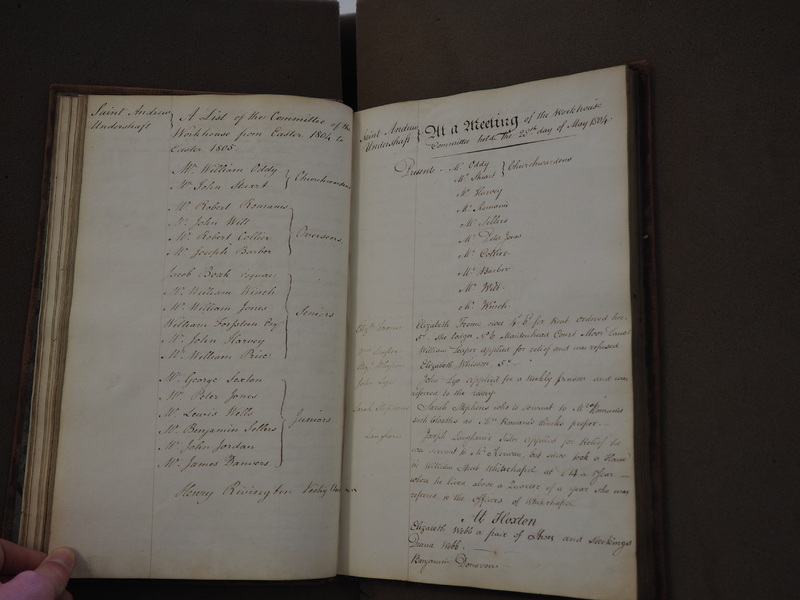 Saint Andrew
Undershaft
A List of the Committee of the
Workhouse from Easter 1804 to
Easter 1805.
Mr. William Oddy
Mr. John Stuart
Churchwardens
Mr. Robert Romanis
Mr. John Witt
Mr. Robert Collier
Mr. Joseph Barber
Overseers
Jacob Boak Esquire
Mr. William Winch
Mr. William Jones
William Forsteen Esq
Mr. John Harvey
Mr. William Price
Seniors
Mr. George Sexton
Mr. Peter Jones
Mr. Lewis Wells
Mr. Benjamin Sellers
Mr. John Jordan
Mr. James Banvers
Juniors
Henry Rivington Vestry Clerk
Saint Andrew
Undershaft
At a Meeting of the Workhouse
Committee held the 25th day of May 1804.
Present Mr. Oddy
Mr. Stuart
Churchwardens
Mr. Harvey
Mr. Romanis
Mr. Sellers
Mr. Peter Jones
Mr. Collier
Mr. Barber
Mr. Witt
Mr. Winch
Elizabeth Frome owes for Rent Ordered her
5/- She lodges No. 6 Maidenhead Court Moor Lane
William applied for relief and was refused
Elizabeth 5/-
John Lye
John Lye applied for a Weekly Pension and was
referred to the
Sarah Stephens
Sarah Stephens who is servant to Mr. Romanis
such Cloaths as Mr. Romanis thinks proper
Langhorne
Joseph Langhorne's Sister applied for Relief he
was servant to Mr. but since took a House
in William Street Whitechapel at £14 a Year
where he lived above a Quarter of a year she was
referred to the Officers of Whitechapel
At Hoxton
Elizabeth Webb a pair of Shoes and Stockings
Diana Webb
Benjamin Donovan